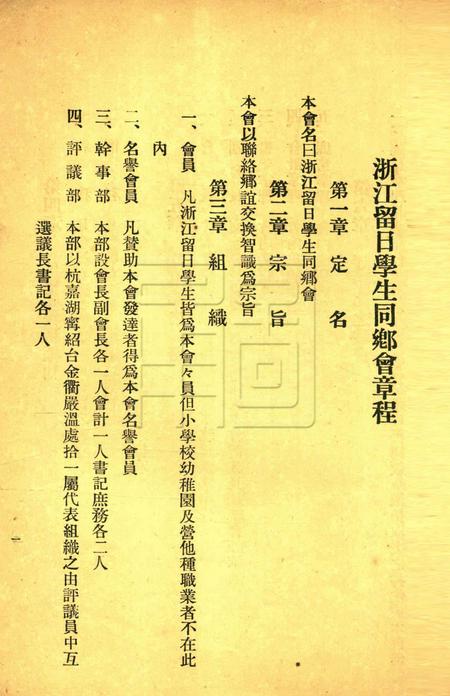 浙江留日學生同鄉會章程
第一章 定名
本會名曰浙江留日學生同鄉會
第二章 宗旨
本會以聯絡鄉誼交換智識爲宗旨
第三章 組織
一、會員 凡浙江留日學生皆爲本會々員但小學校幼稚園及營他種職業者不在此
內
二、名譽會員 凡贊助本會發達者得爲本會名譽會員
三、幹事部 本部設會長副會長各一人會計一人書記庶務各二人
四、評議部 本部以杭嘉湖寗紹台金衢嚴溫處拾一屬代表組織之由評議員中互
選議長書記各一人
一